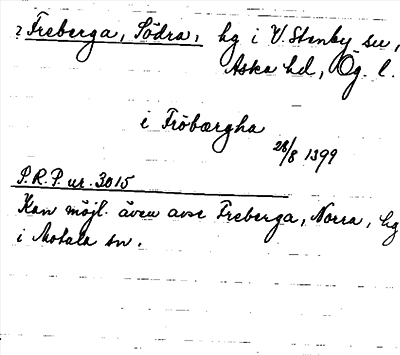 ? Freberga, Södra, hg i V. Stenby sn,
Aska hd, Ög. l.
i Fröbærgha
28/8 1399
P.R.P. nr. 3015
Kan möjl. även avse Freberga, Norra, hg
i Motala sn.